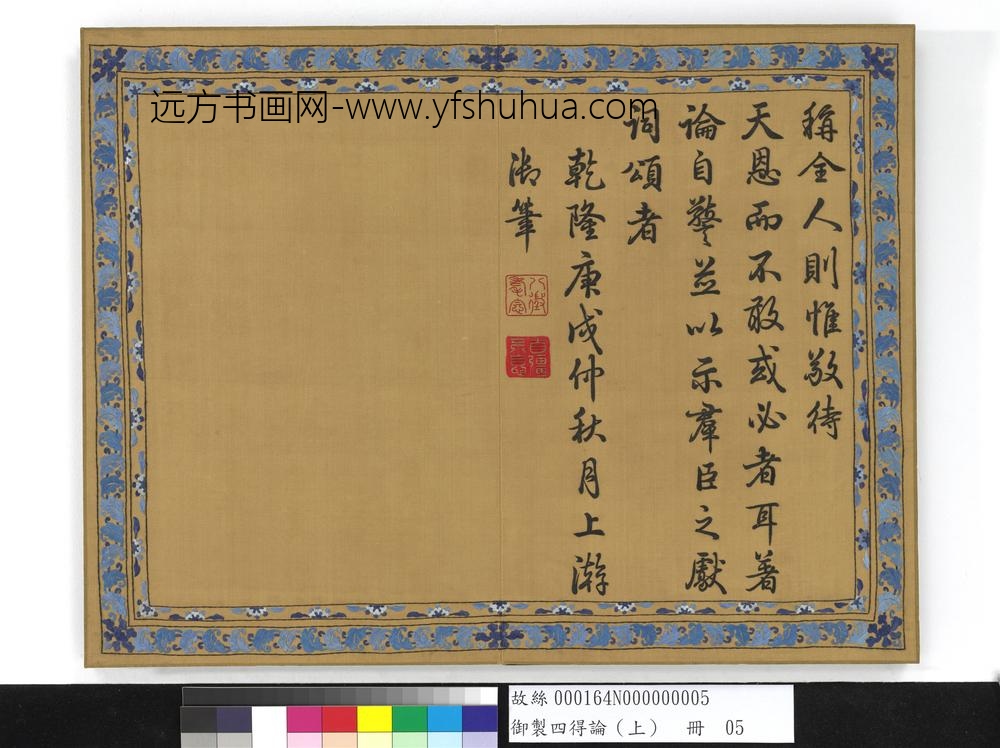 远方书画网-www.yfshuhua.com
稱全人則惟敬待
天恩而不敢或必者耳著
論自警並以示羣臣之獻
詞頌者
乾隆庚戌仲秋月上澣
御筆
八徵耄念
自彊不息
故絲 000164N000000005
御製四得論(上) 冊 05